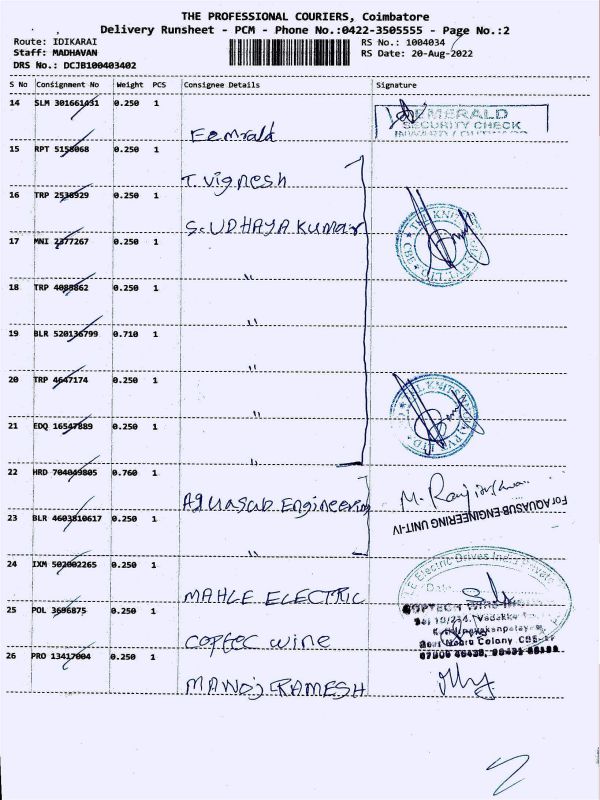 THE PROFESSIONAL COURIERS, Coimbatore
Delivery Runsheet - PCM - Phone No.:0422-3505555 - Page No.:2
Route: IDIKARAI
RS No.: 1004034
Staff: MADHAVAN
RS Date: 20-Aug-2022
DRS No.: DCJB100403402
S No Consignment No Weight PCS Consignee Details Signature
14 SLM 301661431 0.250 1
EMERALD
SECURITY CHECK
Eemrald
15 RPT 5158068 0.250 1
T. Vignesh
16 TRP 2538929 0.250 1
S. UDHAYA Kumar
17 MNI 2377267 0.250 1
"
18 TRP 4088862 0.250 1
"
19 BLR 520136799 0.710 1
"
20 TRP 4647174 0.250 1
"
21 EDQ 16547889 0.250 1
"
22 HRD 704049805 0.760 1
Aquasub Engineering
For AQUASUB ENGINEERING UNIT-IV
23 BLR 4603810617 0.250 1
"
24 IXM 502002265 0.250 1
MAHLE ELECTRIC
Electric Drives India Private
25 POL 3696875 0.250 1
coptec wine
Colony
26 PRO 13417004 0.250 1
MANOJ RAMESH